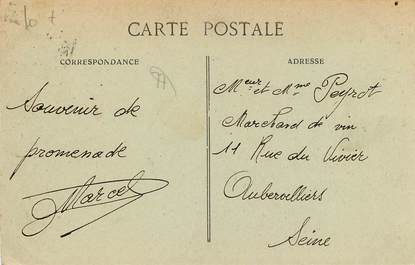 CARTE POSTALE
CORRESPONDANCE
ADRESSE
Souvenir de
promenade
Marcel
Meur et Mme Peyrot
Marchand de vin
11 Rue du Vivier
Aubervilliers
Seine